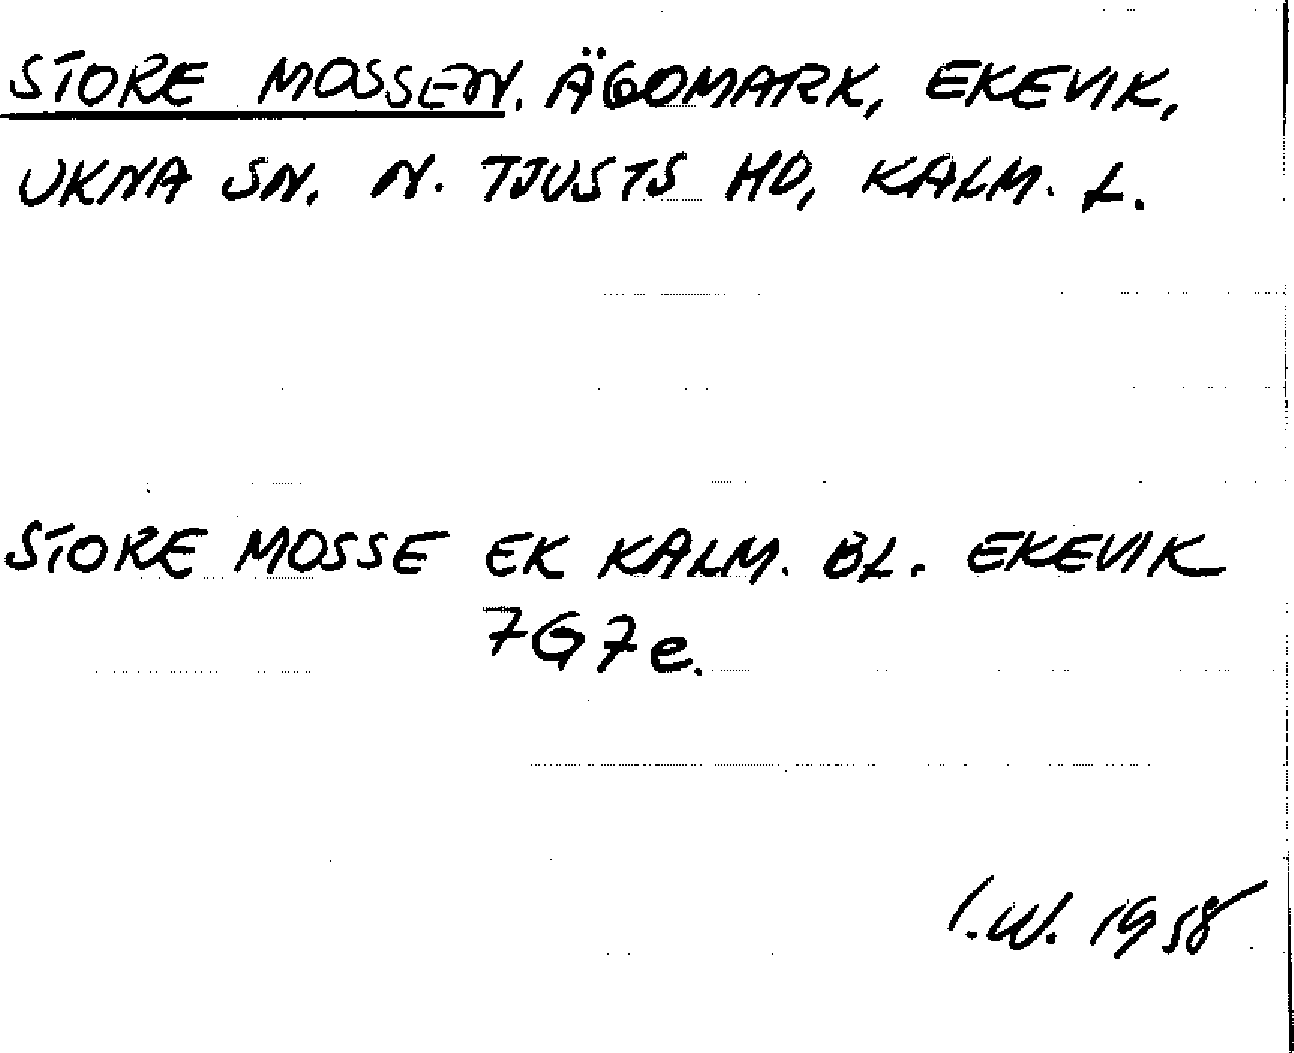 STORE MOSSEN. ÄGOMARK, EKEVIK,
UKNA SN. N. TJUSTS HD, KALM. L.
STORE MOSSE EK KALM. BL. EKEVIK
7G7e.
I.W. 1958